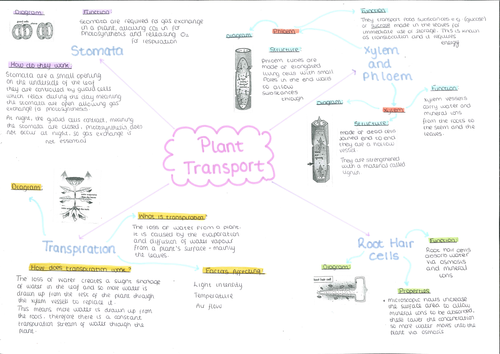 Diagram
Function
Stomata are required for gas exchange
in a plant, allowing CO2 in for
photosynthesis and releasing O2
for respiration
Stomata
How do they work
Stomata are a small opening
on the underside of the leaf
they are controlled by guard cells
which relax during the day meaning
the stomata are open allowing gas
exchange for photosynthesis.
At night, the guard cells contract, meaning
the stomata are closed, photosynthesis does
not occur at night, so gas exchange is
not essential
Diagram
Phloem
Structure:
Phloem tubes are
made of elongated
living cells with small
pores in the end walls
to allow
substances
through
Function:
They transport food substances e.g. (glucose)
or sucrose made in the leaves for
immediate use or storage. This is known
as translocation and it requires
energy
Xylem
and
Phloem
Xylem
Diagram
Function:
Xylem vessels
carry water and
mineral ions
from the roots to
the stem and the
leaves.
Structure:
made of dead cells
joined end to end
they are a hollow
vessel
They are strengthened
with a material called
lignin
Plant
Transport
Diagram
Transpiration
What is transpiration?
The loss of water from a plant.
It is caused by the evaporation
and diffusion of water vapour
from a plant's surface - mainly
the leaves.
How does transpiration work?
The loss of water creates a slight shortage
of water in the leaf and so more water is
drawn up from the rest of the plant through
the xylem vessels to replace it.
This means more water is drawn up from
the roots, therefore there is a constant
transpiration stream of water through the
plant.
Factors Affecting
Light intensity
Temperature
Air flow
Root Hair
cells
Function:
Root hair cells
absorb water
via osmosis
and mineral
ions
Diagram
Properties
• microscopic hairs increase the
surface area to allow
mineral ions to be absorbed,
these lower the concentration
so more water moves into the
plant via osmosis